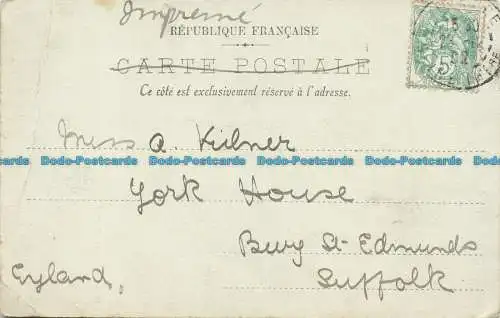 Imprimé
RÉPUBLIQUE FRANÇAISE
CARTE POSTALE
Ce côté est exclusivement réservé à l'adresse.
5
Miss A. Kilner
York House
Bury St Edmunds
Suffolk
England,
Dodo-Postcards Dodo-Postcards Dodo-Postcards Dodo-Postcards Dodo-Postcards